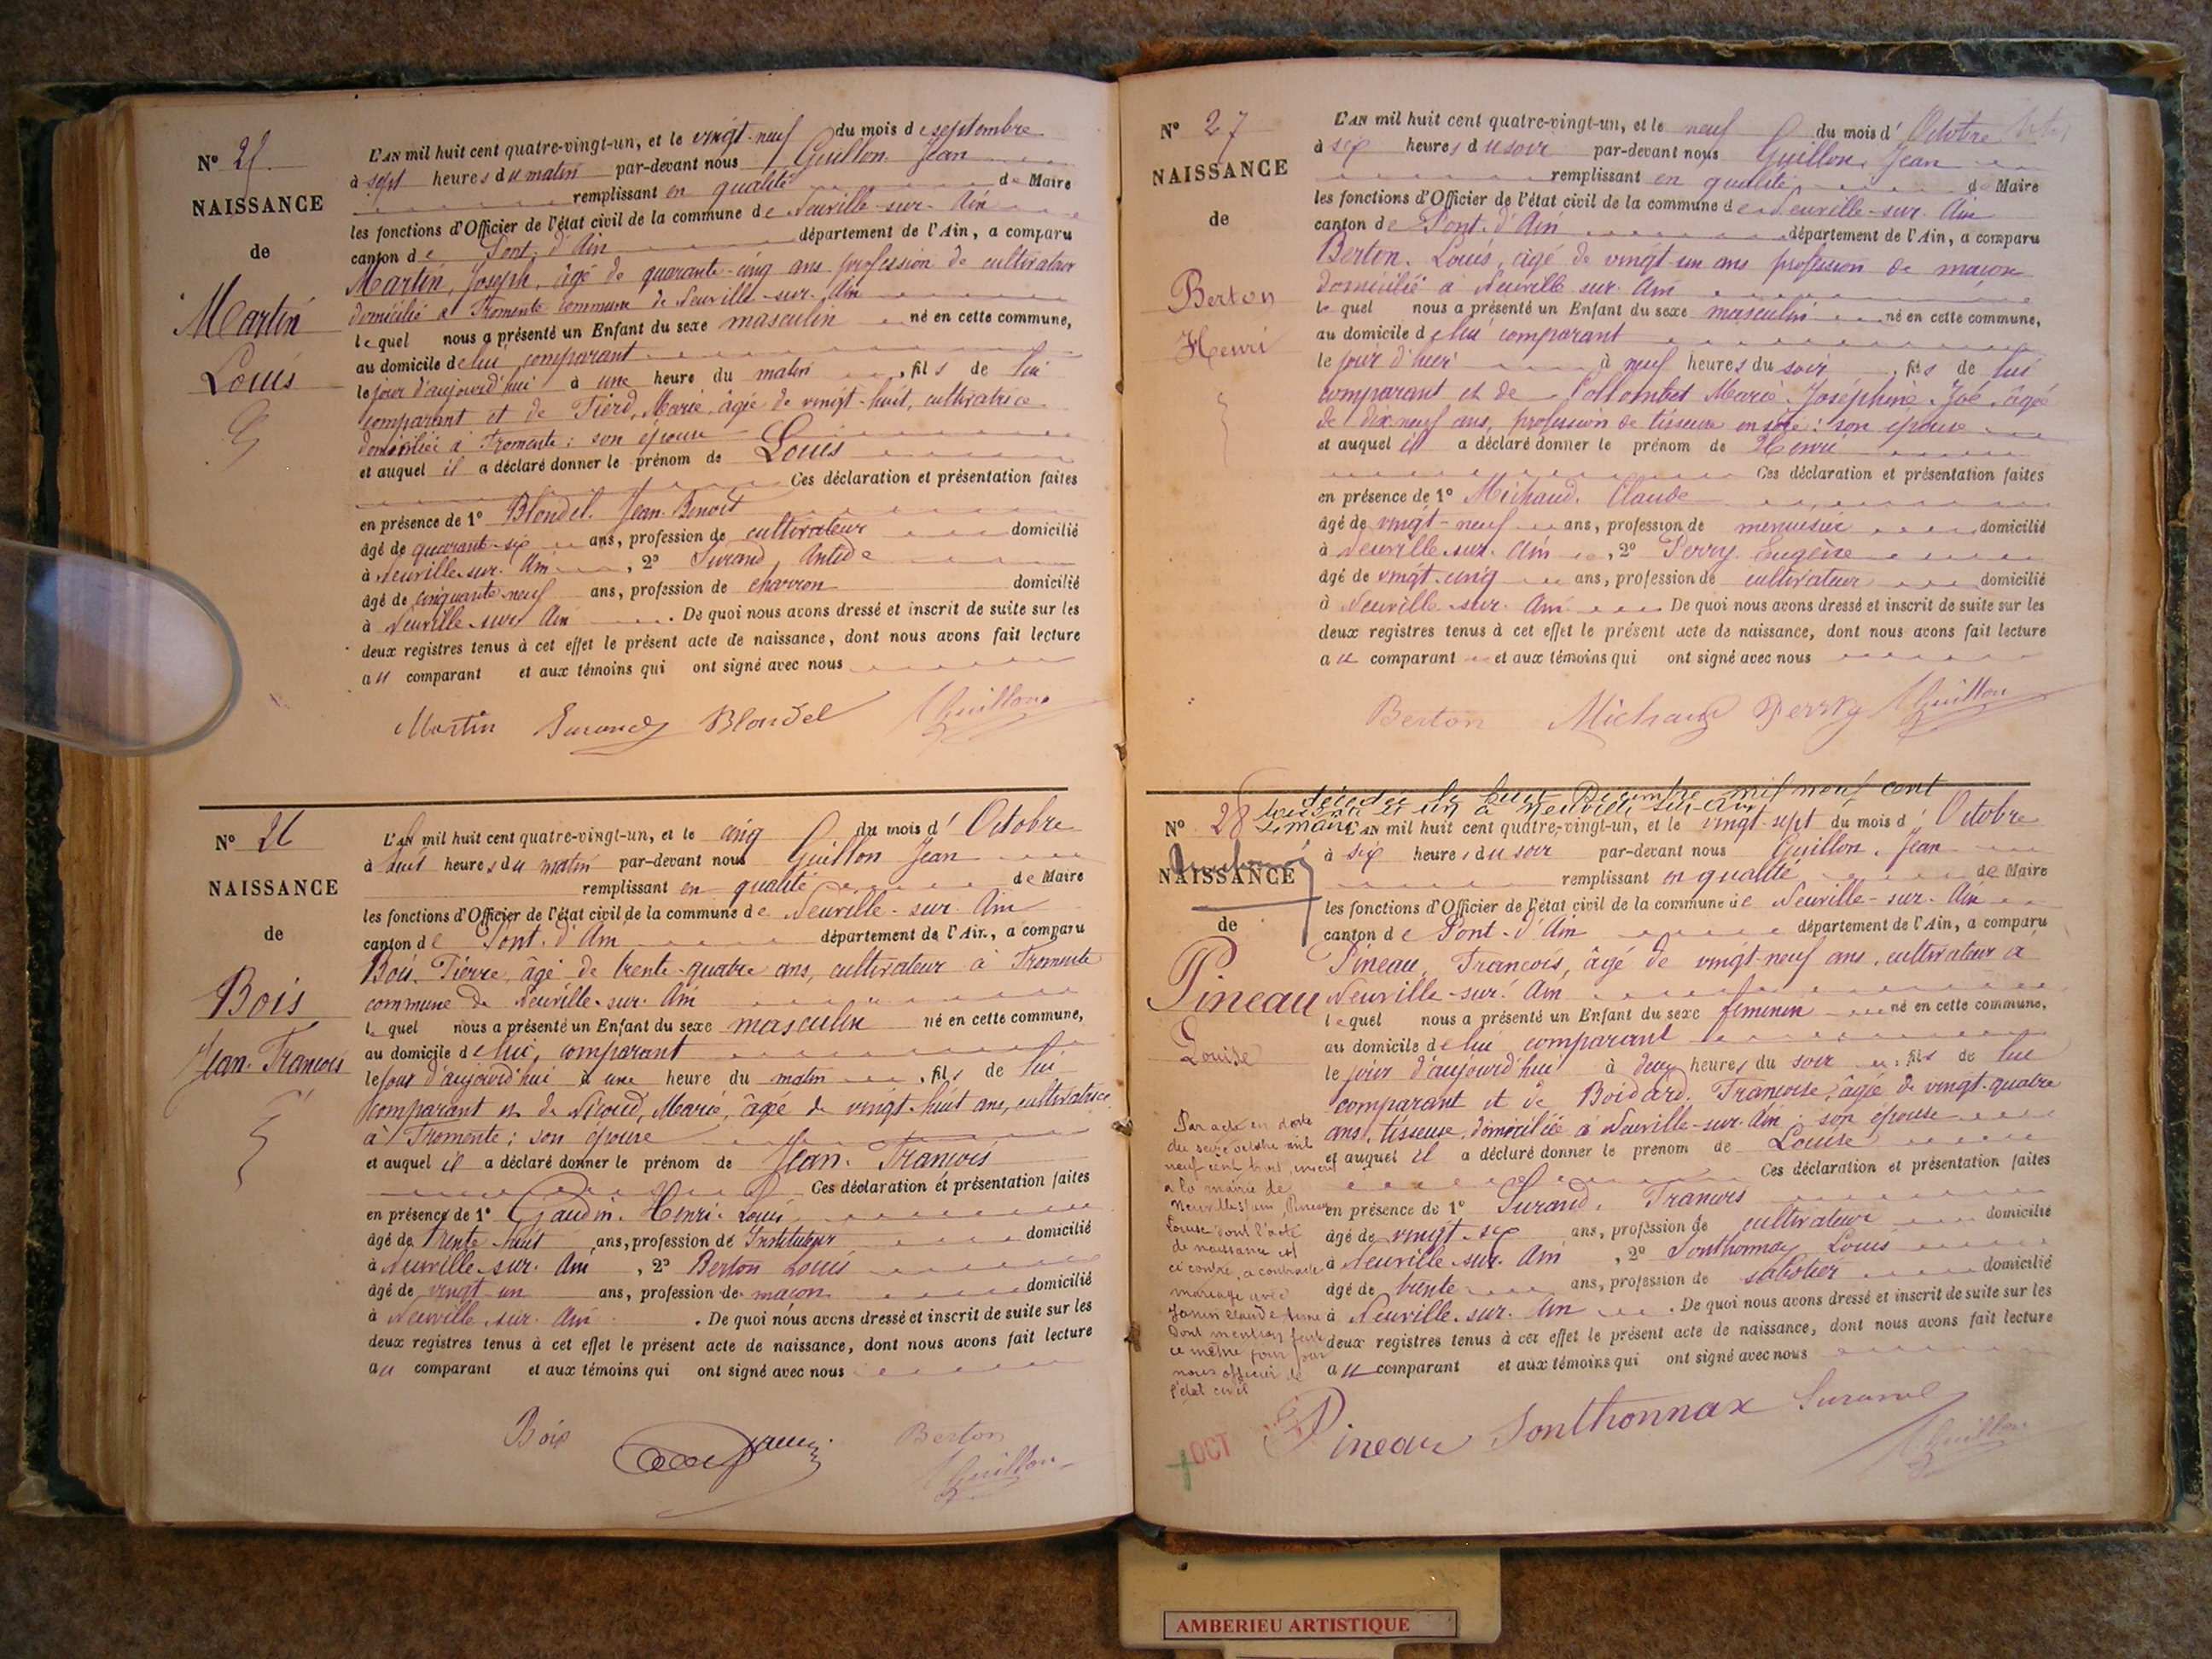 N° 25
NAISSANCE
de
Martin
Louis
L'AN mil huit cent quatre-vingt-un, et le vingt-neuf du mois de septembre
à sept heures du matin par-devant nous Guillon Jean
remplissant en qualité de Maire
les fonctions d'Officier de l'état civil de la commune de Neuville-sur-Ain
canton de Pont-d'Ain département de l'Ain, a comparu
Martin, Joseph, âgé de quarante-cinq ans profession de cultivateur
domicilié à Fromente commune de Neuville-sur-Ain
lequel nous a présenté un Enfant du sexe masculin né en cette commune,
au domicile de lui comparant
le jour d'aujourd'hui à une heure du matin, fils de lui
comparant et de Marie, âgée de vingt-huit, cultivatrice
domiciliée à Fromente : son épouse
et auquel il a déclaré donner le prénom de Louis
Ces déclaration et présentation faites
en présence de 1° Blondel Jean-Benoit
âgé de quarant-six ans, profession de cultivateur domicilié
à Neuville-sur-Ain, 2° Surand Antide
âgé de cinquante-neuf ans, profession de charron domicilié
à Neuville-sur-Ain. De quoi nous avons dressé et inscrit de suite sur les
deux registres tenus à cet effet le présent acte de naissance, dont nous avons fait lecture
au comparant et aux témoins qui ont signé avec nous
Martin Surand Blondel Guillon
N° 26
NAISSANCE
de
Bois
Jean-François
L'AN mil huit cent quatre-vingt-un, et le cinq du mois d'Octobre
à huit heures du matin par-devant nous Guillon Jean
remplissant en qualité de Maire
les fonctions d'Officier de l'état civil de la commune de Neuville-sur-Ain
canton de Pont-d'Ain département de l'Ain, a comparu
Bois Pierre, âgé de trente-quatre ans, cultivateur à Fromente
commune de Neuville-sur-Ain
lequel nous a présenté un Enfant du sexe masculin né en cette commune,
au domicile de lui, comparant
le jour d'aujourd'hui à une heure du matin, fils de lui
comparant et de Marie, âgée de vingt-huit ans, cultivatrice
à Fromente ; son épouse
et auquel il a déclaré donner le prénom de Jean-François
Ces déclaration et présentation faites
en présence de 1° Gaudin Henri-Louis
âgé de trente-huit ans, profession de Instituteur domicilié
à Neuville-sur-Ain, 2° Berton Louis
âgé de vingt-un ans, profession de maçon domicilié
à Neuville-sur-Ain. De quoi nous avons dressé et inscrit de suite sur les
deux registres tenus à cet effet le présent acte de naissance, dont nous avons fait lecture
au comparant et aux témoins qui ont signé avec nous
Bois Berton
Guillon
N° 27
NAISSANCE
de
Berton
Henri
L'AN mil huit cent quatre-vingt-un, et le neuf du mois d'Octobre
à six heures du soir par-devant nous Guillon, Jean
remplissant en qualité de Maire
les fonctions d'Officier de l'état civil de la commune de Neuville-sur-Ain
canton de Pont-d'Ain département de l'Ain, a comparu
Berton Louis, âgé de vingt-un ans profession de maçon
domicilié à Neuville-sur-Ain
lequel nous a présenté un Enfant du sexe masculin né en cette commune,
au domicile de lui comparant
le jour d'hier à neuf heures du soir, fils de lui
comparant et de Collombet Marie-Joséphine âgée
de dix-neuf ans, profession de tisseuse en soie : son épouse
et auquel il a déclaré donner le prénom de Henri
Ces déclaration et présentation faites
en présence de 1° Michaud, Claude
âgé de vingt-neuf ans, profession de menuisier domicilié
à Neuville-sur-Ain, 2° Perry Eugène
âgé de vingt-cinq ans, profession de cultivateur domicilié
à Neuville-sur-Ain De quoi nous avons dressé et inscrit de suite sur les
deux registres tenus à cet effet le présent acte de naissance, dont nous avons fait lecture
au comparant et aux témoins qui ont signé avec nous
Berton Michaud Perry Guillon
décédée le huit Décembre mil neuf cent
soixante et un à Neuville-sur-Ain
le maire
N° 28
NAISSANCE
de
Pineau
Louise
L'AN mil huit cent quatre-vingt-un, et le vingt-sept du mois d'Octobre
à six heures du soir par-devant nous Guillon, Jean
remplissant en qualité de Maire
les fonctions d'Officier de l'état civil de la commune de Neuville-sur-Ain
canton de Pont-d'Ain département de l'Ain, a comparu
Pineau, François, âgé de vingt-neuf ans, cultivateur à
Neuville-sur-Ain
lequel nous a présenté un Enfant du sexe féminin né en cette commune,
au domicile de lui comparant
le jour d'aujourd'hui à deux heures du soir, fils de lui
comparant et de Boidard, Françoise, âgée de vingt-quatre
ans, tisseuse, domiciliée à Neuville-sur-Ain : son épouse
et auquel il a déclaré donner le prénom de Louise
Ces déclaration et présentation faites
en présence de 1° Surand, François
âgé de vingt-six ans, profession de cultivateur domicilié
à Neuville-sur-Ain, 2° Sonthonnax Louis
âgé de trente ans, profession de sabotier domicilié
à Neuville-sur-Ain. De quoi nous avons dressé et inscrit de suite sur les
deux registres tenus à cet effet le présent acte de naissance, dont nous avons fait lecture
au comparant et aux témoins qui ont signé avec nous
Par acte en date
du seize octobre mil
neuf cent
à la mairie de
Neuville s/ Ain, Pineau
Louise dont l'acte
de naissance est
ci contre, a contracté
mariage avec
Janin Claude
dont mention faite
ce même jour par
nous officier de
l'état civil
Pineau Sonthonnax Surand
Guillon
OCT
AMBERIEU ARTISTIQUE